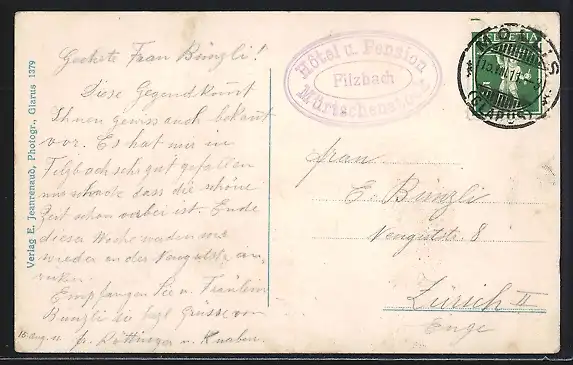 Geehrte Frau Bünzli!
Diese Gegend kommt
Ihnen gewiss auch bekannt
vor. Es hat mir in
Filzbach sehr gut gefallen
nur schade dass die schöne
Zeit schon vorbei ist. Ende
dieser Woche werden wir
wieder an der Neugutstr. an
rücken.
Empfangen Sie u. Fräulein
Bünzli die bzgl Grüsse von
16. Aug. 11 fr. Röttinger u. Knaben.
Verlag E. Jeanrenaud, Photogr., Glarus 1379
Hôtel u. Pension
Filzbach
Mürtschenstock
HELVETIA
MOLLIS
(GLARUS)
Frau
E. Bünzli
Neugutstr. 8
Zürich II
Enge